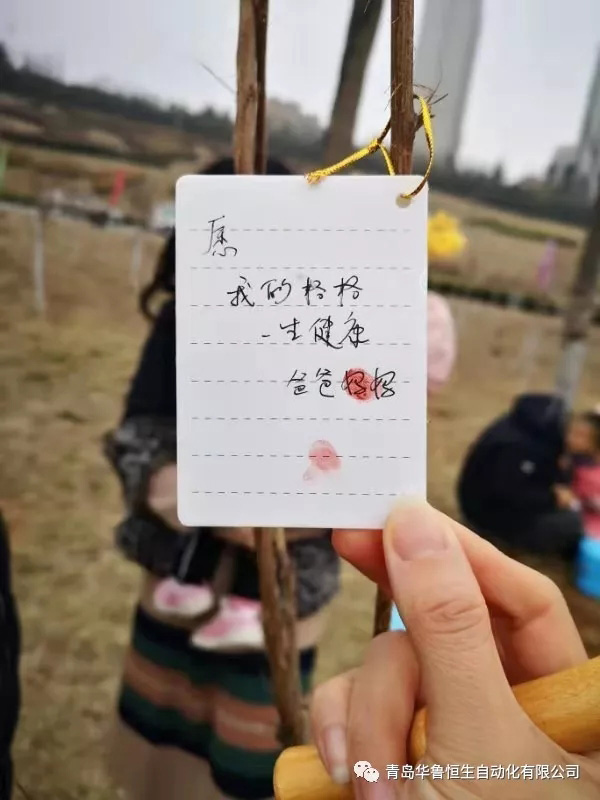 愿
我的格格
一生健康
爸爸妈妈
青岛华鲁恒生自动化有限公司